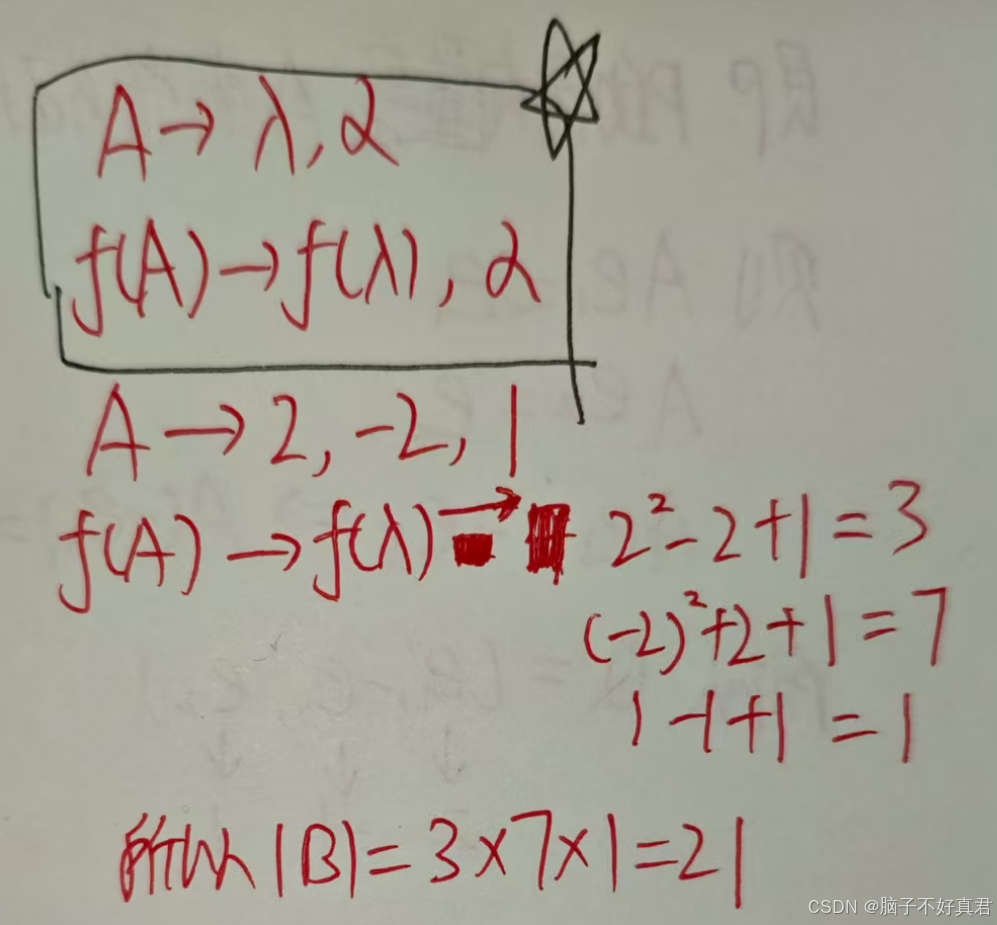 A → λ, α
f(A) → f(λ), α
A → 2, -2, 1
f(A) → f(λ) → 2² - 2 + 1 = 3
(-2)² + 2 + 1 = 7
1 - 1 + 1 = 1
所以 |B| = 3 × 7 × 1 = 21
CSDN @脑子不好真君